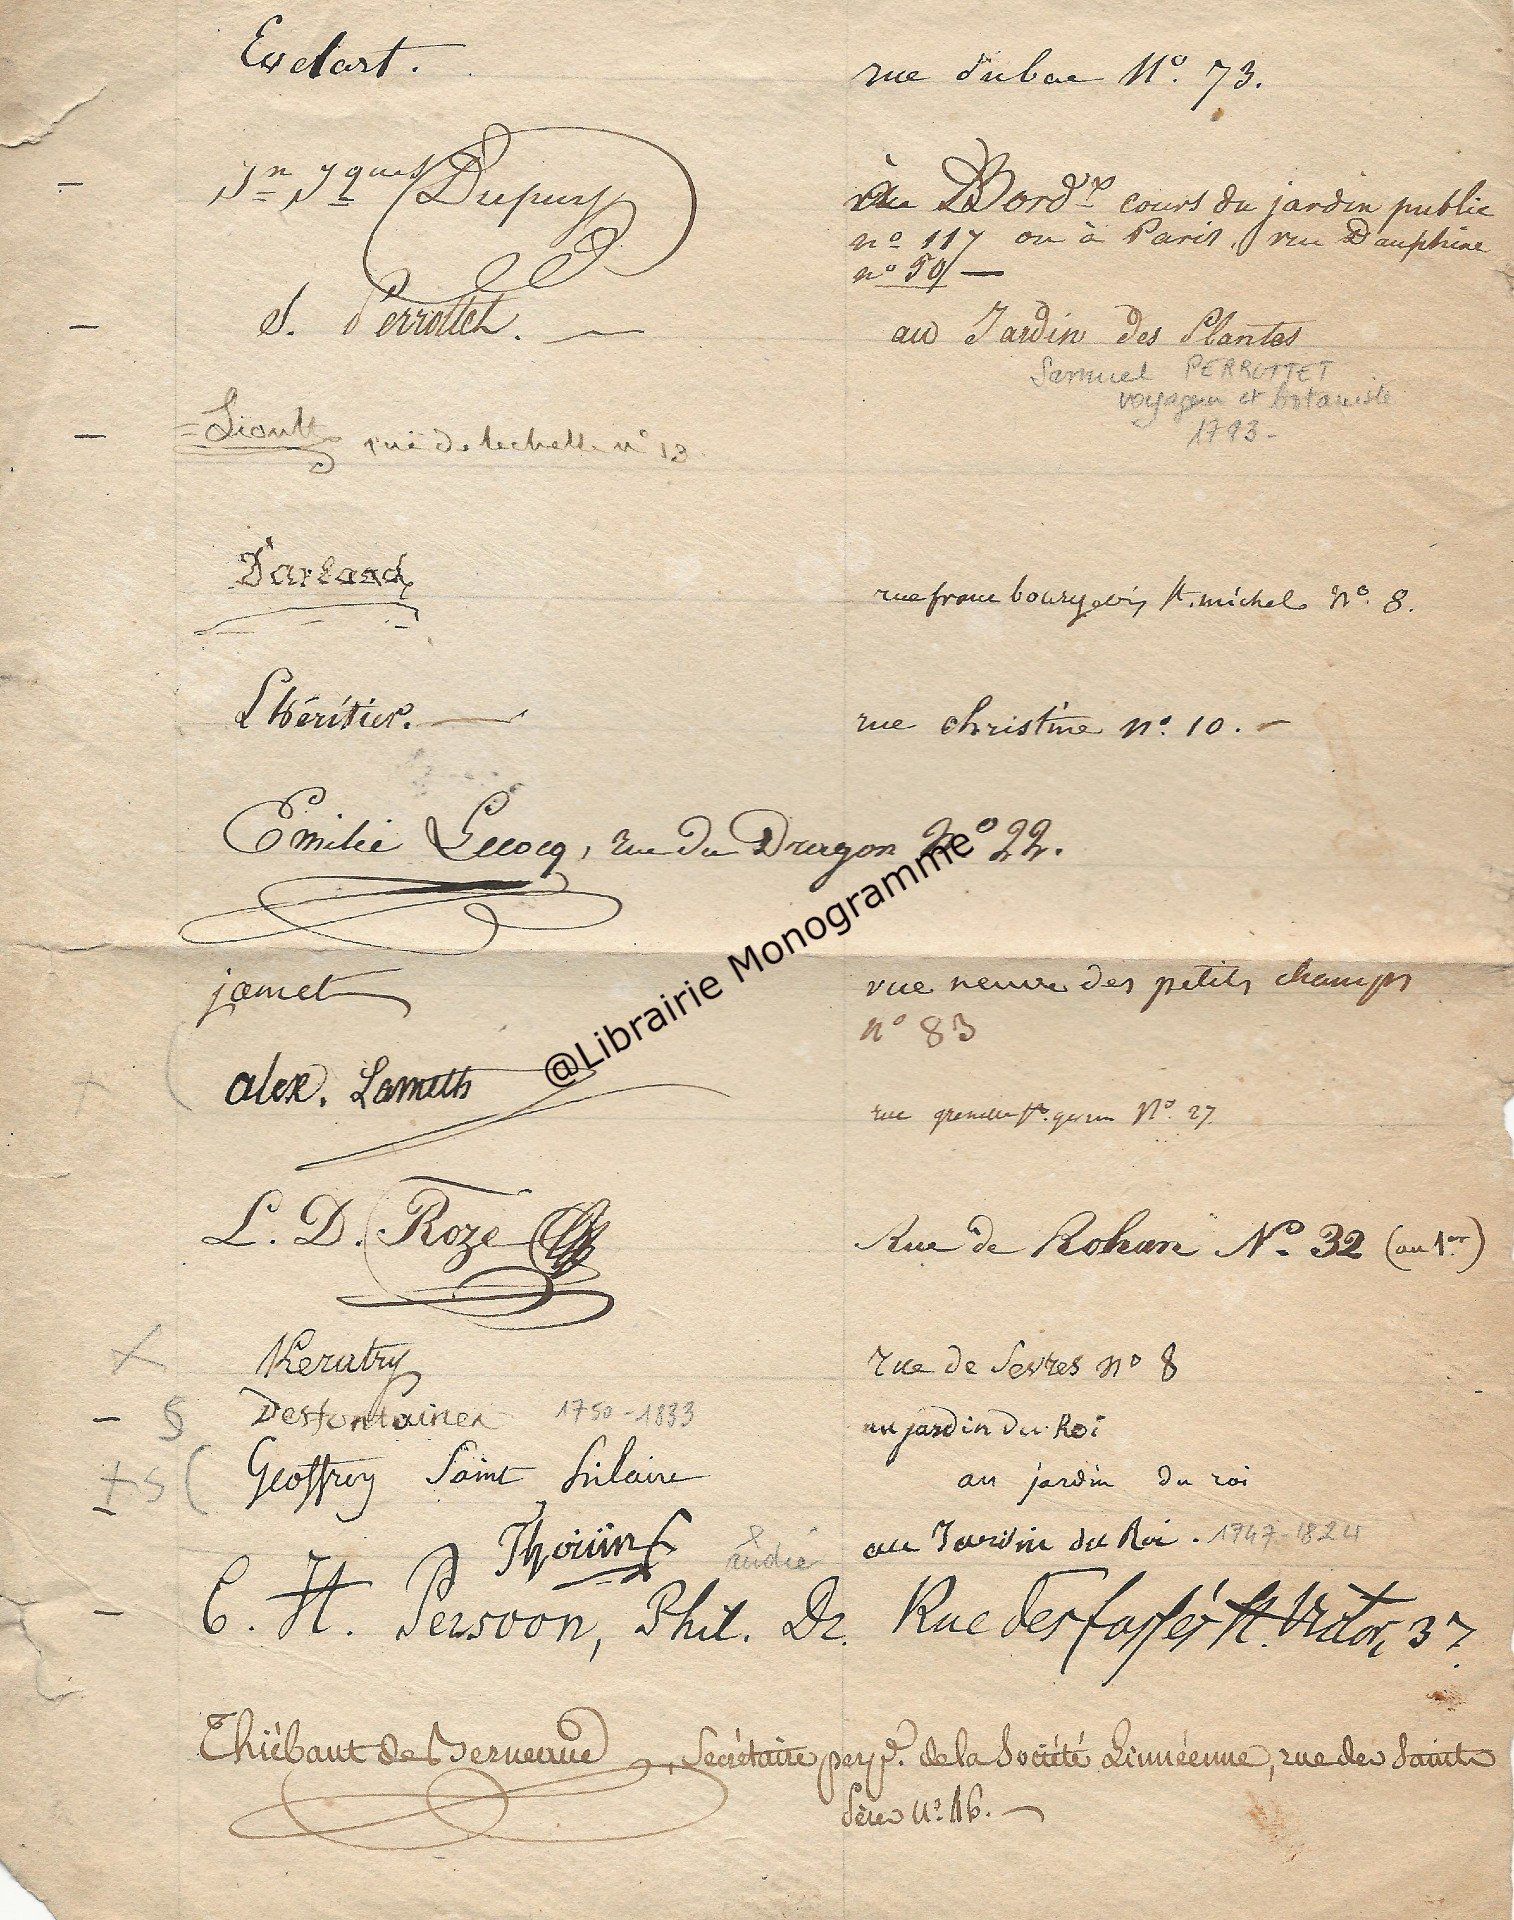 rue du bac N° 73.
Jn Jques Dupuy
à Bordx cours du jardin public
n° 117 ou à Paris, rue Dauphine
n° 50 —
S. Perrottet. —
au Jardin des Plantes
Samuel PERROTTET
voyageur et botaniste
1793 -
rue de lechelle n° 13
rue franc bourgeois St. michel N° 8.
Lhéritier. —
rue christine n° 10. -
Emilie Lecocq, rue du Dragon N° 22.
jamet
rue neuve des petits champs
n° 83
alex. Lameth
rue grenelle St. germ N° 27
L. D. Roze
Rue de Rohan N° 32 (au 1er)
Keratry
rue de Sevres n° 8
Desfontaines 1750-1833
au jardin du Roi
Geoffroy Saint hilaire
au jardin du roi
Thoüin
au Jardin du Roi. 1747-1824
C. H. Persoon, Phil. Dr. Rue des fossés St. Victor, 37.
Thiébaut de Berneaud, Secrétaire perpl. de la Société Linnéenne, rue des Saints
Pères n° 46. —
@Librairie Monogramme